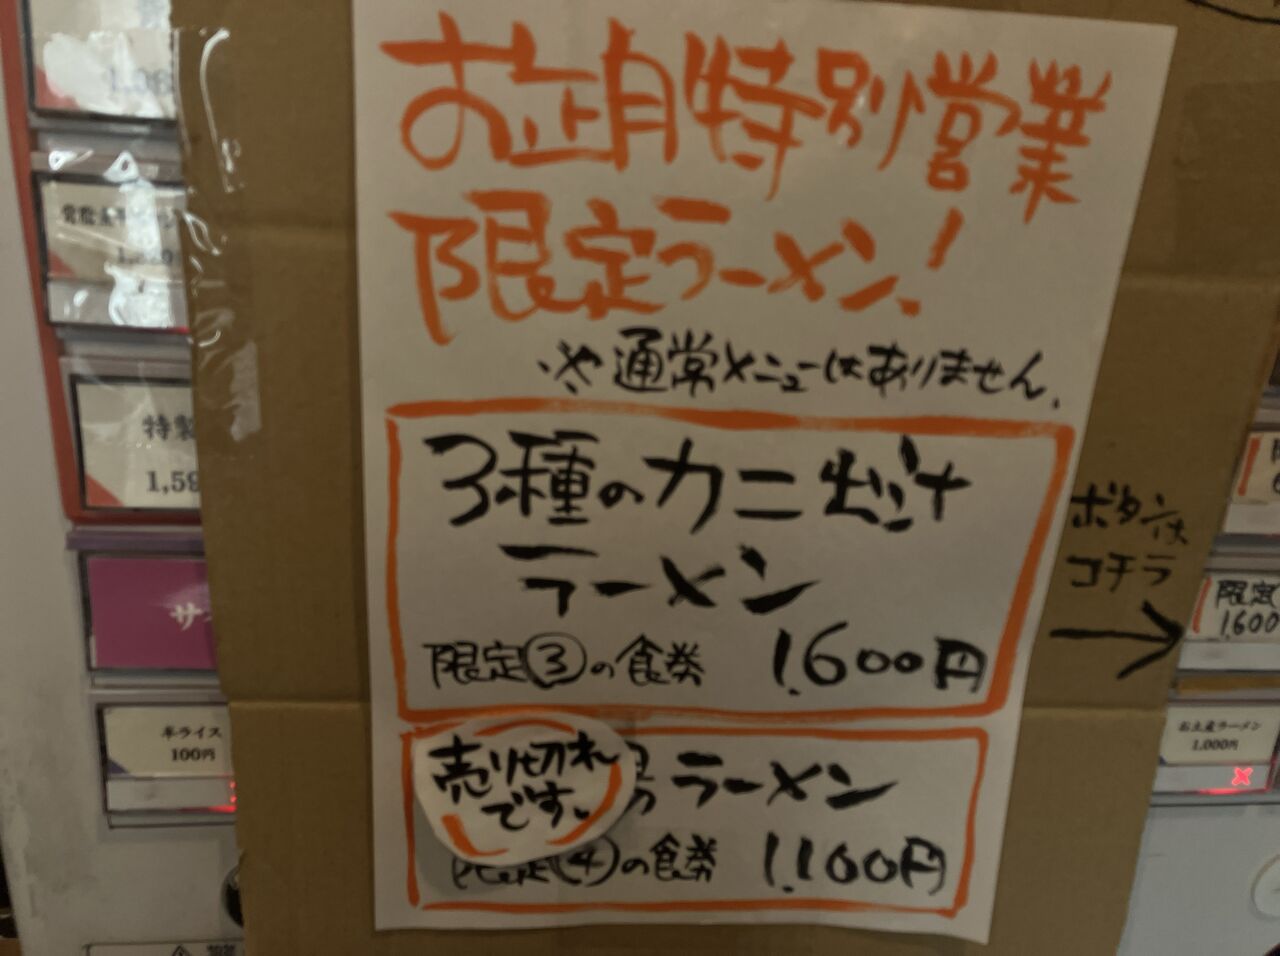 お正月特別営業
限定ラーメン!
※通常メニューはありません.
3種のカニ出汁
ラーメン
限定③の食券 1,600円
売り切れ
です。
ラーメン
限定④の食券 1,100円
ボタンは
コチラ
→
限定
1,600
お土産ラーメン
1,000円
特製
1,59
サ
半ライス
100円